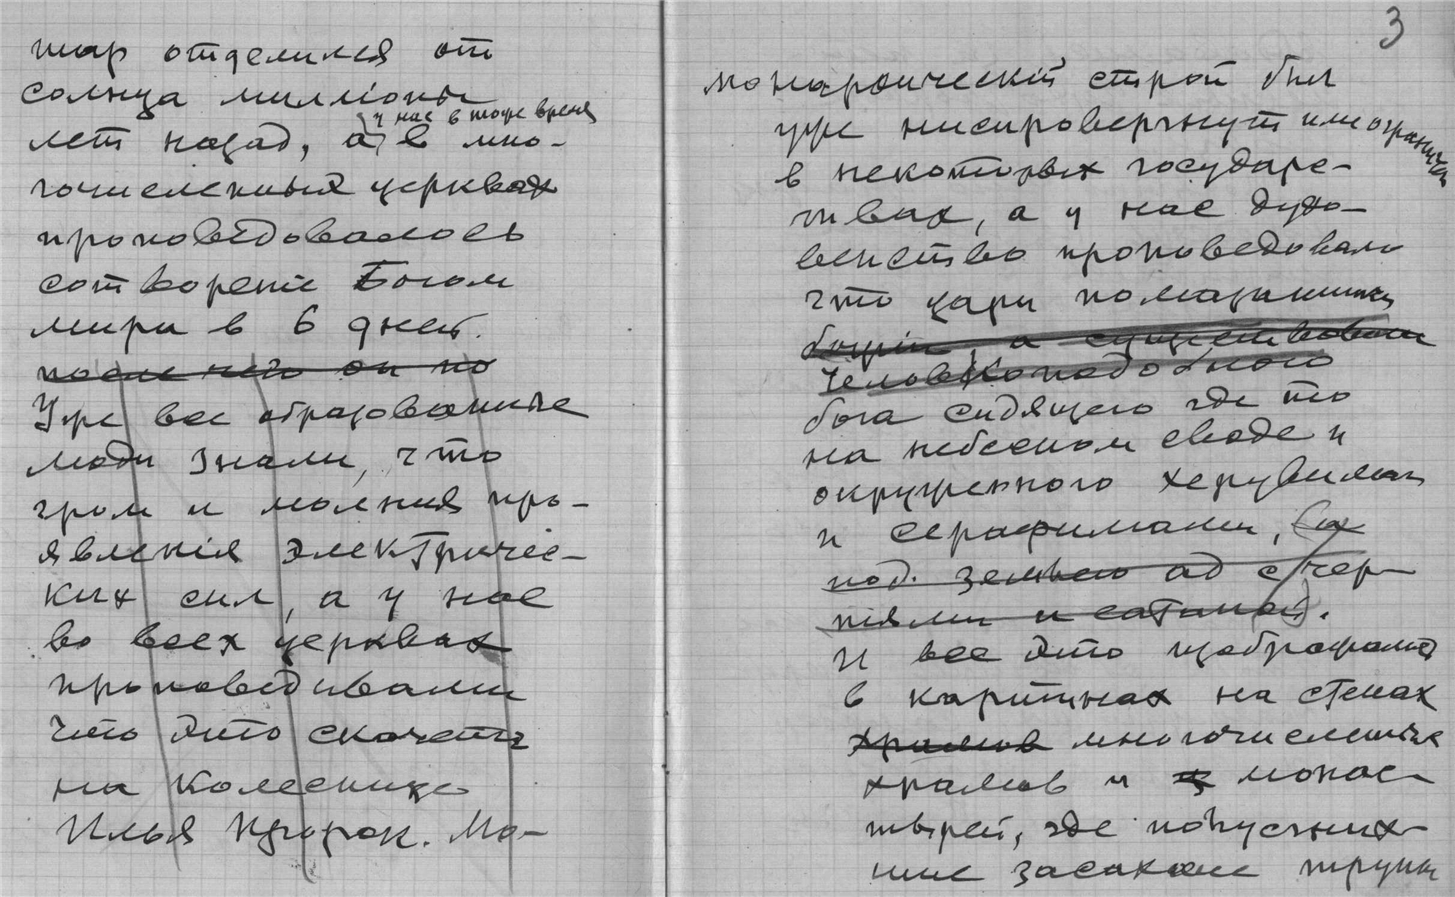 шар отделился от
солнца миллионы
у нас в тоже время
лет назад, а в мно-
гочисленных церквах
проповедовалось
сотворение Богом
мира в 6 дней.
после чего он по
Уже все образованные
люди знали, что
гром и молния про-
явленія электричес-
ких сил, а у нас
во всех церквах
проповедывали
что это скачет
на колеснице
Илья пророк. Мо-
3
монархический строй был
уже ниспровергнут или огранич
в некоторых государс-
твах, а у нас духо-
венство проповедовало
что цари помазанники
божіи, а существовани
человекоподобного
бога сидящего где то
на небесном своде и
окруженного херувимами
и серафимами, (а
под землею ад с чер-
тями и сатаной).
И все это изображали
в картинах на стенах
храмов многочисленных
храмов и монас-
тырей, где
засохшие трупы